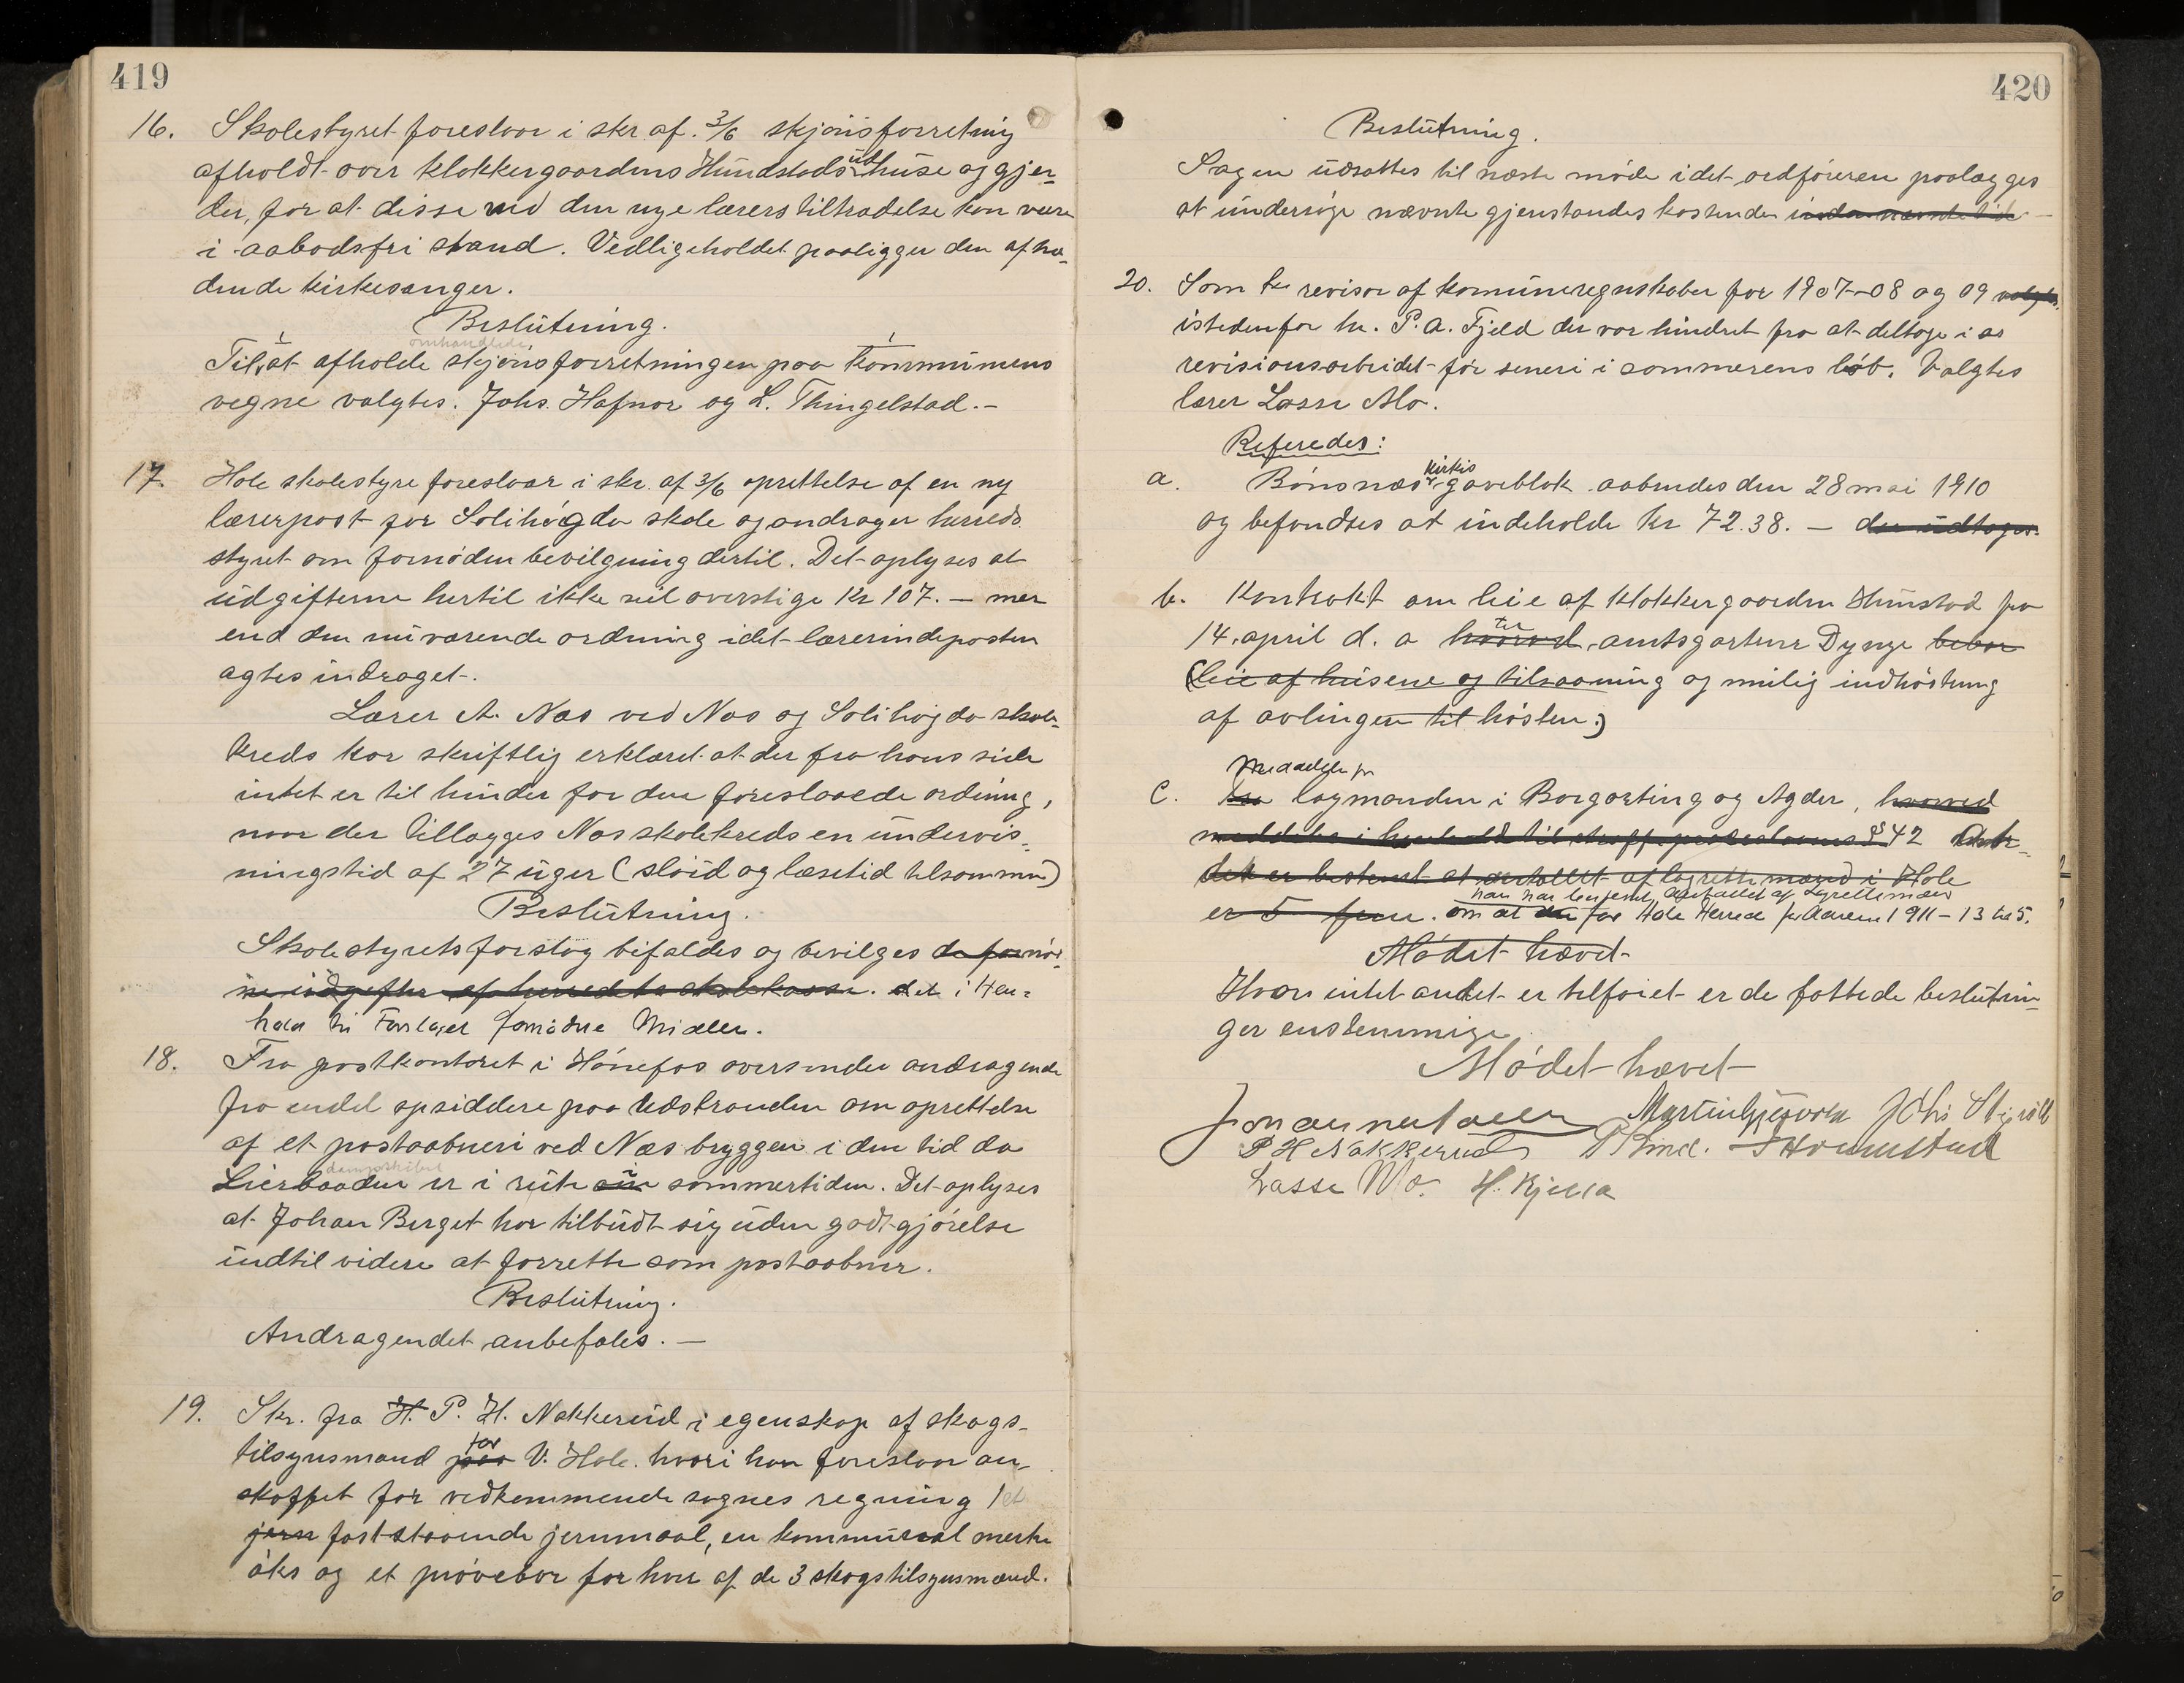 419
16. Skolestyret foreslaar i skr. af. 3/6 skjønsforretning
afholdt over klokkergaardens Hundstads udhuse og gjer-
der, for at disse ved den nye lærers tiltrædelse kan være
i aabodsfri stand. Vedligeholdet paaligger den aftræ-
dende kirkesanger.
Beslutning.
omhandlede
Til at afholde skjønsforretningen paa kommunens
vegne valgtes. Johs. Hafnor og L. Thingelstad.-
17. Hole skolestyre foreslaar i skr. af 3/6 oprettelse af en ny
lærerpost for Solihøgda skole og andrager herreds
styret om fornøden bevilgning dertil. Det oplyses at
udgifterne hertil ikke vil overstige Kr 107.- mer
end den nuværende ordning idet lærerindeposten
agtes indraget.
Lærer A. Næs ved Næs og Solihøjda skole-
kreds har skriftlig erklæret at der fra hans side
intet er til hinder for den foreslaaede ordning,
naar der tillægges Næs skolekreds en undervis-
ningstid af 27 uger (sløid og læsetid tilsammen)
Beslutning.
Skolestyrets forslag bifaldes og bevilges de fornød-
ne udgifter af herredets skolekasse. det i Hen-
hold til Forslaget fornødne Midler.
18. Fra postkontoret i Hønefos oversendes andragende
fra endel opsiddere paa Udstranden om oprettelse
af et postaabneri ved Næs bryggen i den tid da
dampskibet
Lierbaaden er i rute i sommertiden. Det oplyses
at Johan Berget har tilbudt sig uden godtgjørelse
indtil videre at forrette som postaabner.
Beslutning.
Andragendet anbefales.-
19. Skr. fra H. P. H. Nakkerud i egenskap af skogs-
tilsynsmand paa for V. Hole. hvori han foreslaar an-
skaffet for vedkommende sognes regning 1 et
jern faststaaende jernmaal, en kommunal merke
øks og et prøvebor for hver af de 3 skogstilsynsmænd.
420
Beslutning.
Sagen udsættes til næste møde idet ordføreren paalægges
at undersøge nævnte gjenstandes kostende inden nævnte tid -
20. Som revisor af komuneregnskaber for 1907-08 og 09 valgtes
istedenfor hr. P. A. Fjeld der var hindret fra at deltage i
revisionsarbeidet før senere i sommerens løb. Valgtes
lærer Lasse Mo.
Referedes:
a. Bønsnæs kirkes gaveblok aabnedes den 28 mai 1910
og befandtes at indeholde Kr 72.38. - der udtoges.
b. Kontrakt om leie af klokkergaarden Hunstad fra
14. april d. a hvorved til amtsgartner Dynge bebor
(leie af husene og tilsaaning og mulig indhøstning
af avlingen til høsten.)
Meddelelse fra
c. fra lagmanden i Borgarting og Agder, hvorved
meddeles i henhold til straffeproceslovens § 42
det er bestemt at antallet af lagrettemænd i Hole
han har bestemt Antallet af Lagrettemænd
er 5 fem. om at for Hole Herred for Aarene 1911-13 til 5.
Mødet hævet
Hvor intet andet er tilføiet er de fattede beslutnin-
ger enstemmige.
Mødet hævet
P H Nakkerud
Lasse Mo. H. Kjella